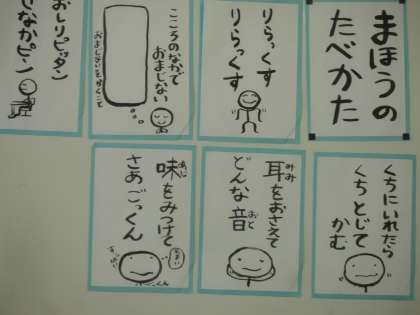 まほうの
たべかた
りらっくす
りらっくす
こころのなかで
おまじない
おまじないをかくこと
おしりピッタン
せなかピーン
くちにいれたら
くちとじて
かむ
耳をおさえて
みみ
どんな音
おと
味をみつけて
あじ
さあごっくん